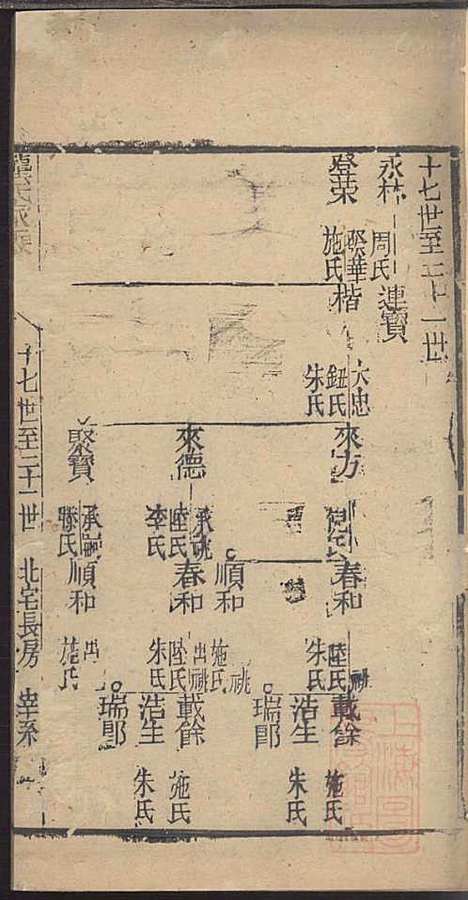 十七世至二十一世
永林
周氏
連寶
登荣
聚華
施氏
楷
大忠
鈕氏
朱氏
來方
春和
陸氏
朱氏
載餘
施氏
浩生
朱氏
瑞郎
順和
施氏
祧
來德
承祧
陸氏
李氏
春和
出祧
陸氏
朱氏
載餘
施氏
浩生
朱氏
瑞郎
聚寶
承嗣
滕氏
順和
出
施氏
十七世至二十一世 北宅長房 宰系